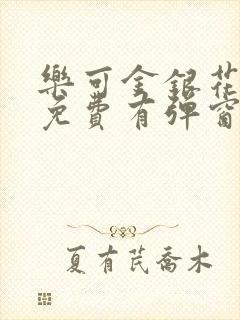 樂可金銀花
免費有彈窗
夏有芪喬木